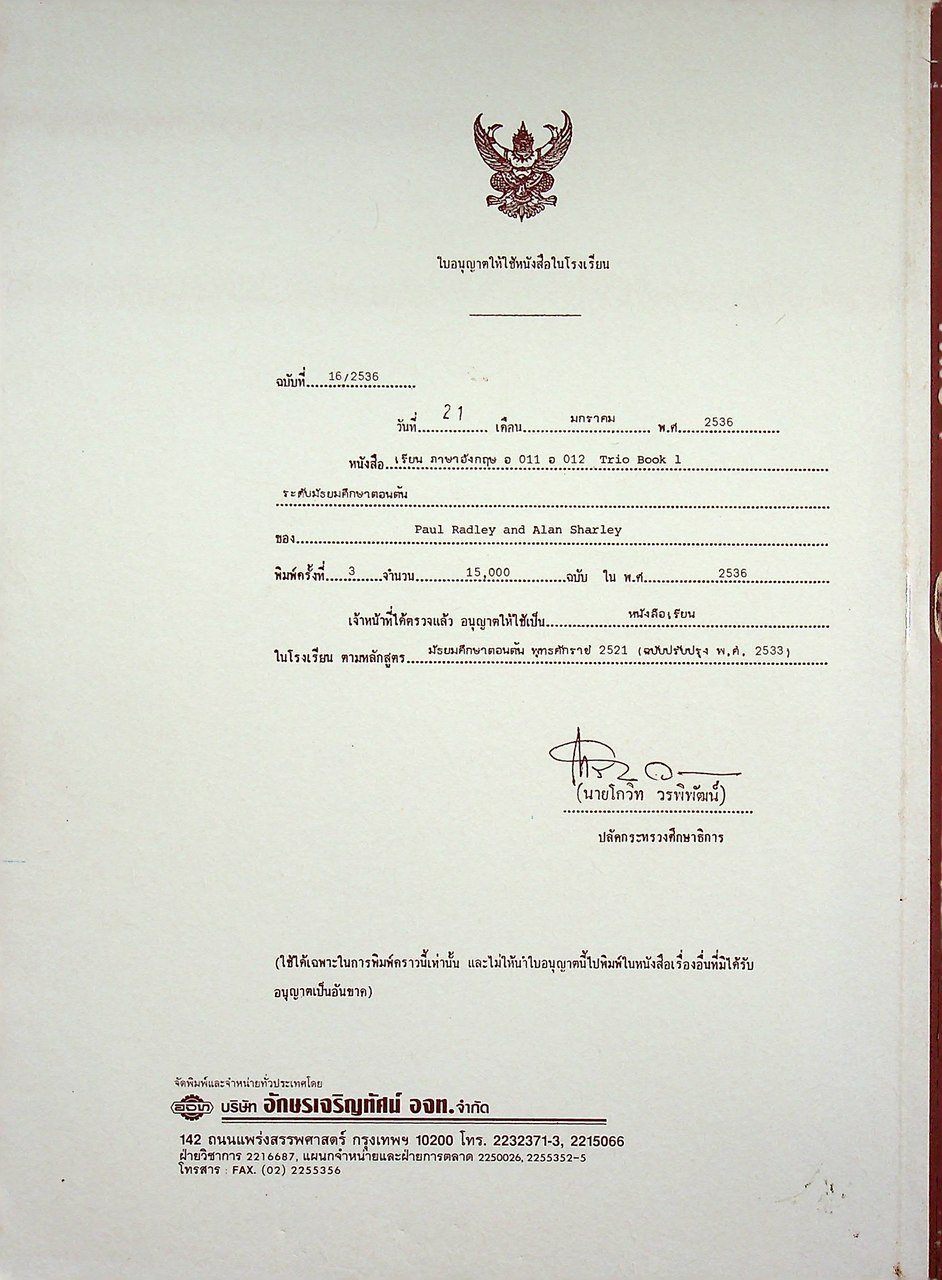 ใบอนุญาตให้ใช้หนังสือในโรงเรียน
ฉบับที่ 16/2536
วันที่ 21 เดือน มกราคม พ.ศ. 2536
หนังสือ เรียน ภาษาอังกฤษ อ 011 อ 012 Trio Book 1
ระดับมัธยมศึกษาตอนต้น
ของ Paul Radley and Alan Sharley
พิมพ์ครั้งที่ 3 จำนวน 15,000 ฉบับ ใน พ.ศ. 2536
เจ้าหน้าที่ได้ตรวจแล้ว อนุญาตให้ใช้เป็น หนังสือเรียน
ในโรงเรียน ตามหลักสูตร มัธยมศึกษาตอนต้น พุทธศักราช 2521 (ฉบับปรับปรุง พ.ศ. 2533)
(นายโกวิท วรพิพัฒน์)
ปลัดกระทรวงศึกษาธิการ
(ใช้ได้เฉพาะในการพิมพ์คราวนี้เท่านั้น และไม่ให้นำใบอนุญาตนี้ไปพิมพ์ในหนังสือเรื่องอื่นที่มิได้รับ
อนุญาตเป็นอันขาด)
จัดพิมพ์และจำหน่ายทั่วประเทศโดย
อจท บริษัท อักษรเจริญทัศน์ อจท. จำกัด
142 ถนนแพร่งสรรพศาสตร์ กรุงเทพฯ 10200 โทร. 2232371-3, 2215066
ฝ่ายวิชาการ 2216687, แผนกจำหน่ายและฝ่ายการตลาด 2250026, 2255352-5
โทรสาร : FAX. (02) 2255356